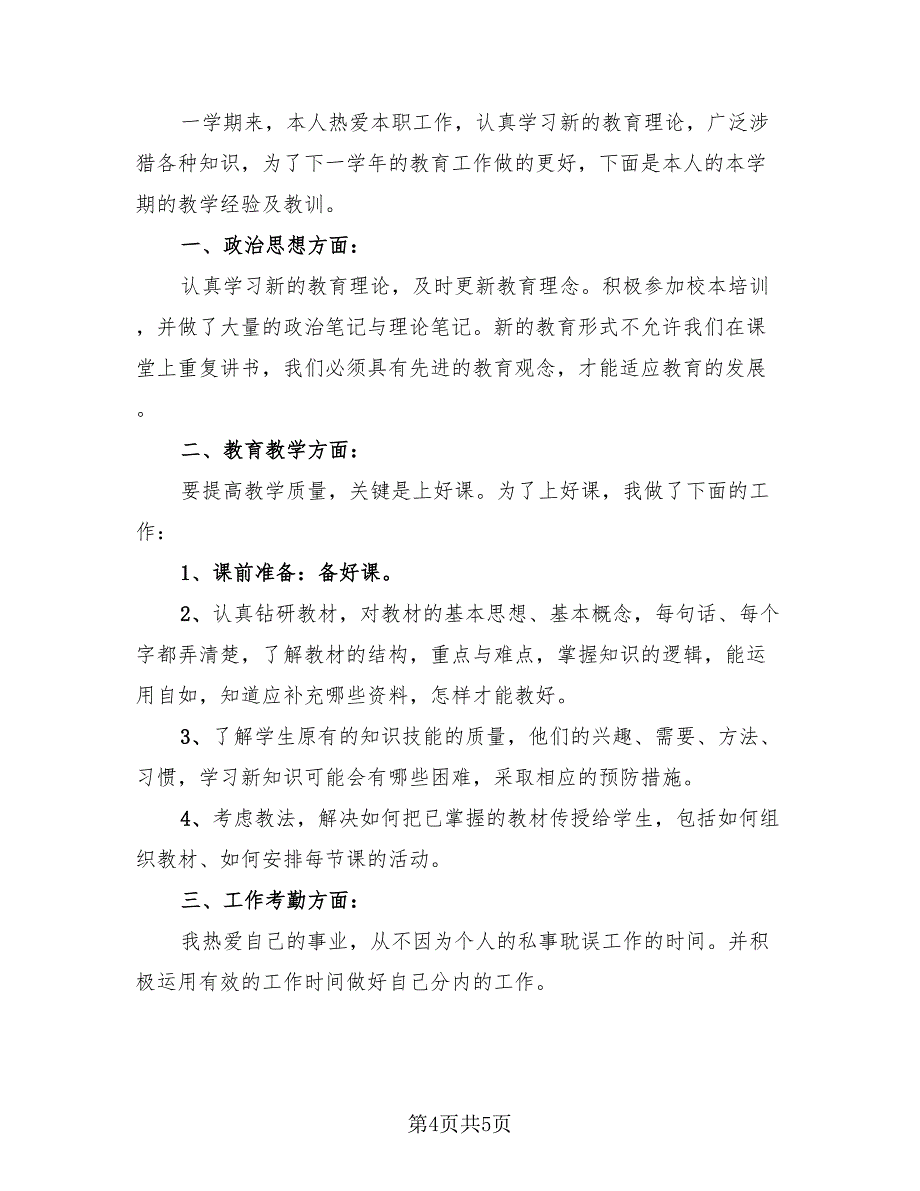 一学期来，本人热爱本职工作，认真学习新的教育理论，广泛涉
猎各种知识，为了下一学年的教育工作做的更好，下面是本人的本学
期的教学经验及教训。
一、政治思想方面：
认真学习新的教育理论，及时更新教育理念。积极参加校本培训
，并做了大量的政治笔记与理论笔记。新的教育形式不允许我们在课
堂上重复讲书，我们必须具有先进的教育观念，才能适应教育的发展
。
二、教育教学方面：
要提高教学质量，关键是上好课。为了上好课，我做了下面的工
作：
1、课前准备：备好课。
2、认真钻研教材，对教材的基本思想、基本概念，每句话、每个
字都弄清楚，了解教材的结构，重点与难点，掌握知识的逻辑，能运
用自如，知道应补充哪些资料，怎样才能教好。
3、了解学生原有的知识技能的质量，他们的兴趣、需要、方法、
习惯，学习新知识可能会有哪些困难，采取相应的预防措施。
4、考虑教法，解决如何把已掌握的教材传授给学生，包括如何组
织教材、如何安排每节课的活动。
三、工作考勤方面：
我热爱自己的事业，从不因为个人的私事耽误工作的时间。并积
极运用有效的工作时间做好自己分内的工作。
第4页共5页